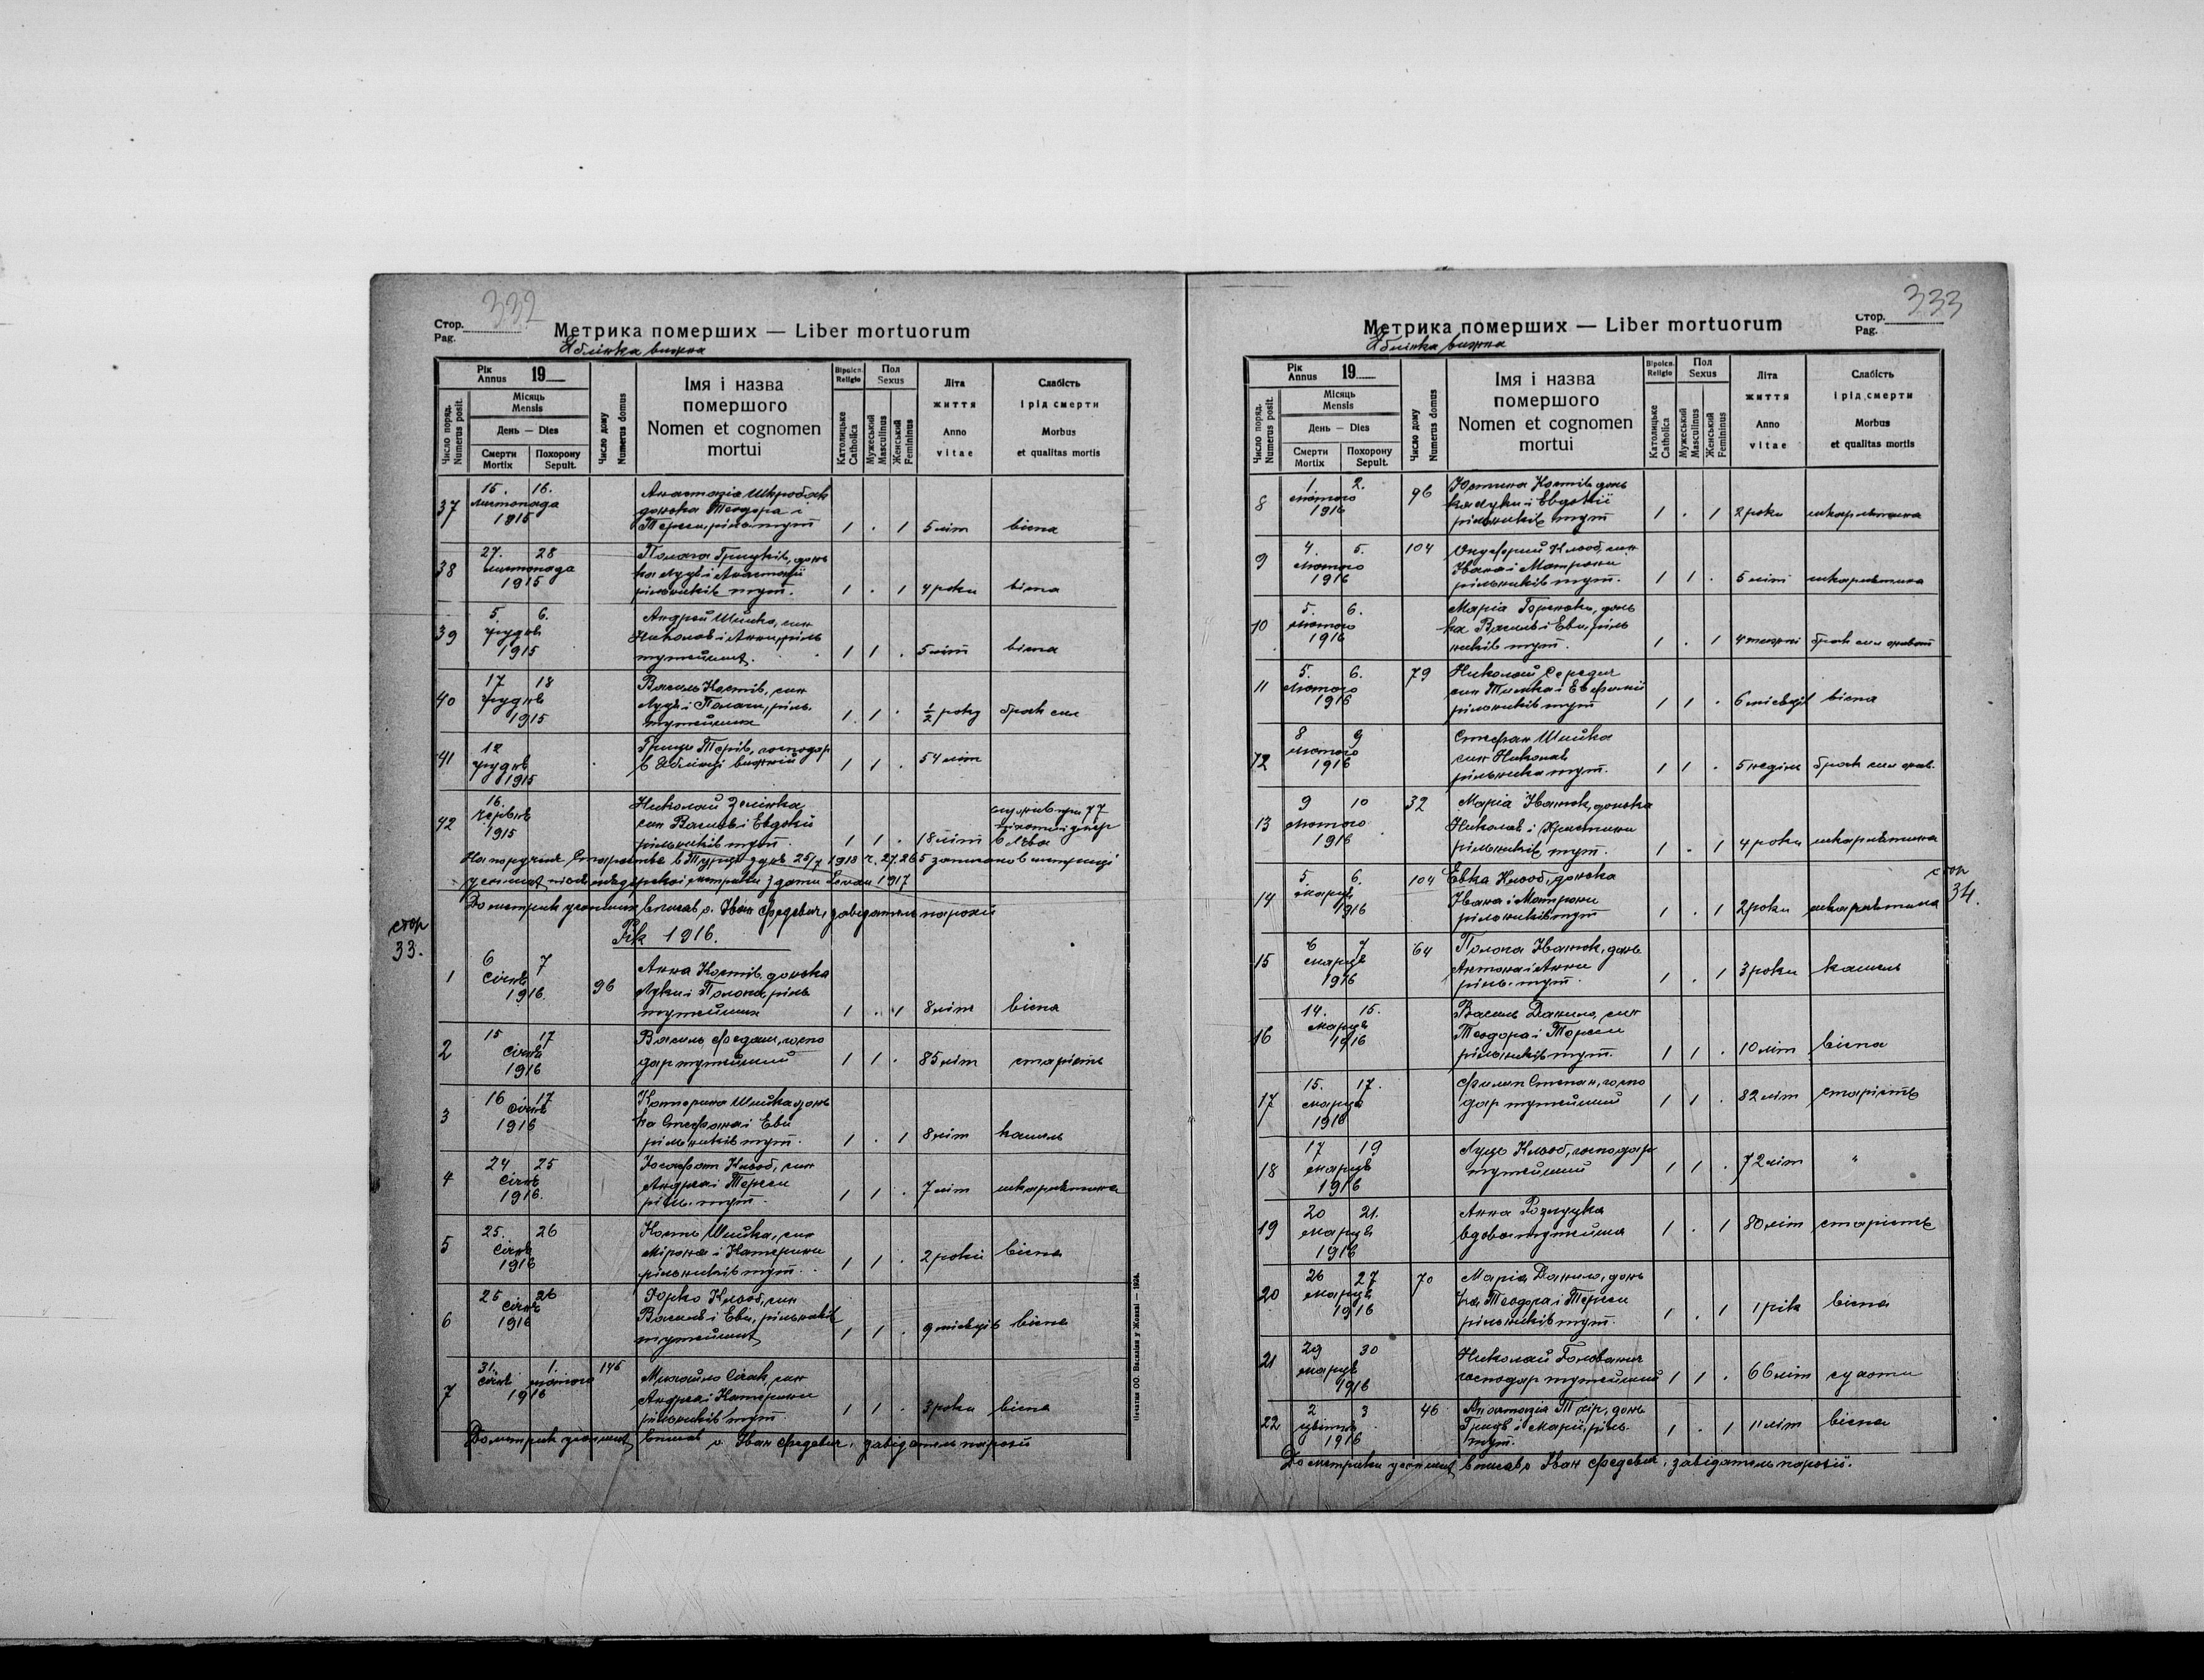 332
Стор.
Pag.
Метрика померших — Liber mortuorum
Яблінка вижна
Число поряд.
Numerus posit.
Рік
Annus 19
Місяць
Mensis
День — Dies
Смерти
Mortix
Похорону
Sepult.
Число дому
Numerus domus
Імя і назва
помершого
Nomen et cognomen
mortui
Віроісп.
Religio
Католицьке
Catholica
Пол
Sexus
Мужеський
Masculinus
Женський
Femininus
Літа
життя
Anno
vitae
Слабість
і рід смерти
Morbus
et qualitas mortis
37 15. 16.
листопада
1915
Анастазія Шкробак
донька Теодора і
Тереси, тут 1 . 1 5 літ віспа
38 27. 28
листопада
1915
Полага Грицків, донь
ка Луця і Анастазії
рільників тут. 1 . 1 4 роки віспа
39 5. 6.
грудня
1915
Андрей Шийка, син
Николая і Анни, ріль
тутейших. 1 1 . 5 літ віспа
40 17 18
грудня
1915
Василь Костів, син
Луця і Полаги, ріль.
тутейших 1 1 . ½ року брак сил
41 12
грудня
1915
Гриць Терів, господар
в Яблінці вижній 1 1 . 54 літ
42 16.
червня
1915
Николай Зелінка
син Василя і Евдокії
рільників тут. 1 1 . 18 літ
служив при 77
На поручення Староства в Турці дня 25/7 1918 ч. 27.265 записано в метриці
1917
До метрик умерших вписав о. Іван Федевич, завідатель парохії
стор
33.
Рік 1916.
1 6 7
Січня
1916.
96 Анна Костів, донька
Луки і Полаги, ріль
тутейших 1 . 1 8 літ віспа
2 15 17
Січня
1916
Василь Федаш, госпо
дар тутейший 1 1 . 85 літ старість
3 16 17
січня
1916
Катерина Шийка, донь
ка Стефана і Еви
рільників тут. 1 . 1 8 літ кашель
4 24 25
Січня
1916.
Йосафат Клюб, син
Андрея і Тереси
ріль. тут. 1 1 . 7 літ шкарлятина
5 25. 26
Січня
1916
Кость Шийка, син
Мірона і Катерини
рільників тут. 1 1 . 2 роки віспа
6 25 26
Січня
1916
Юрко Клюб, син
Василя і Еви, рільників
тутейших 1 1 . 9 місяців віспа
7 31. 1.
січня лютого
1916
145 Михайло Січак, син
Андрея і Катерини
рільників тут. 1 1 . 3 роки віспа
До метрик умерших вписав о. Іван Федевич, завідатель парохії
Печатня ОО. Василіян у Жовкві — 1928.
333
Стор.
Pag.
Метрика померших — Liber mortuorum
Яблінка вижна
Число поряд.
Numerus posit.
Рік
Annus 19
Місяць
Mensis
День — Dies
Смерти
Mortix
Похорону
Sepult.
Число дому
Numerus domus
Імя і назва
помершого
Nomen et cognomen
mortui
Віроісп.
Religio
Католицьке
Catholica
Пол
Sexus
Мужеський
Masculinus
Женський
Femininus
Літа
життя
Anno
vitae
Слабість
і рід смерти
Morbus
et qualitas mortis
8 1. 2.
лютого
1916
96 Юстина Костів, донь
ка Луки і Евдокії
рільників тут 1 . 1 2 роки шкарлятина
9 4. 5.
лютого
1916
104 Онуфрий Клюб, син
Івана і Матрони
рільників тут. 1 1 . 5 літ шкарлятина
10 5. 6.
лютого
1916
Марія, донь
ка Василя і Еви, ріль
ників тут. 1 . 1 4 брак сил
11 5. 6.
лютого
1916
79 Николай Середич
син Тимка і Евфимії
рільників тут 1 1 . 6 місяців віспа
12 8 9
лютого
1916
Стефан Шийка
син Николая
рільника тут. 1 1 . 5 неділь брак сил
13 9 10
лютого
1916
32 Марія Іванюк, донька
Николая і Христини
рільників тут. 1 . 1 4 роки шкарлятина
14 5. 6.
марця
1916
104 Евка Клюб, донька
Івана і Матрони
рільників тут 1 . 1 2 роки шкарлятина
стор
34.
15 6 7
марця
1916
64 Полага Іванюк, донь.
Антона і Анни
ріль. тут. 1 . 1 3 роки кашель
16 14. 15.
марця
1916
Василь Данило, син
Теодора і Тереси
рільників тут. 1 1 . 10 літ віспа
17 15. 17.
марця
1916
Филип Степан, госпо
дар тутейший 1 1 . 82 літ старість
18 17 19
марця
1916
Луць Клюб, господар
тутейший 1 1 . 72 літ "
19 20 21.
марця
1916
Анна Розлуцка
вдова тутейша 1 . 1 80 літ старість
20 26 27
марця
1916
70 Марія Данило, донь
ка Теодора і Тереси
рільників тут. 1 . 1 1 рік віспа
21 29 30
марця
1916
Николай Головчич
господар тутейший 1 1 . 66 літ сухоти
22 2 3
цвітня
1916
46 Анастазія, донь.
Гриця і Марії, ріль.
тут. 1 . 1 11 літ віспа
До метрики умерших вписав о. Іван Федевич, завідатель парохії.